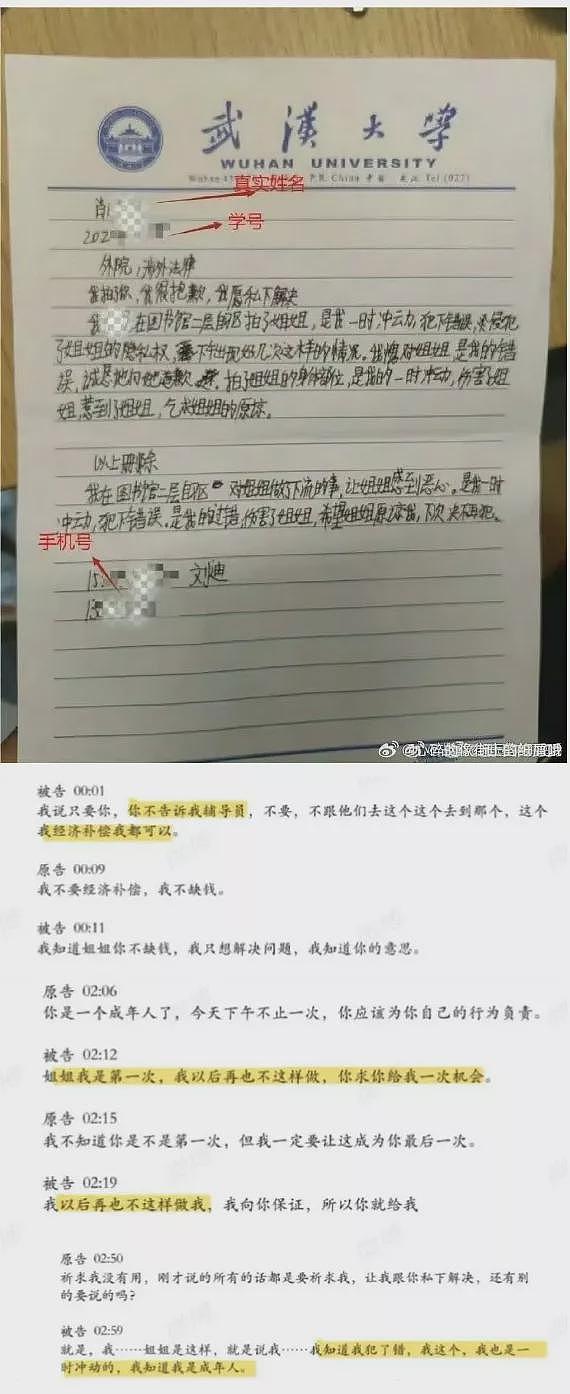 武漢大學
WUHAN UNIVERSITY
P.R. China
Tel (027)
真实姓名
肖
学号
202
外院，涉外法律
我拍了你，我很抱歉，我愿私下解决
我 在图书馆一层自习区拍了姐姐，是我一时冲云力，犯下错误，侵犯
了姐姐的隐私权，下午出现好几次这样的情况。我愧对姐姐，是我的错
误，诚恳地向她道歉。拍了姐姐的身体部位，是我的一时冲动，伤害了姐
姐，惹到了姐姐，乞求姐姐的原谅。
以上删除
我在图书馆二层自习区 对姐姐做了下流的事，让姐姐感到恶心。是我一时
冲动，犯下错误。是我的过错，伤害了姐姐，希望姐姐原谅我，下次决不再犯。
手机号
15
刘迪
13
被告 00:01
我说只要你，你不告诉我辅导员，不要，不跟他们去这个这个去到那个，这个
我经济补偿我都可以。
原告 00:09
我不要经济补偿，我不缺钱。
被告 00:11
我知道姐姐你不缺钱，我只想解决问题，我知道你的意思。
原告 02:06
你是一个成年人了，今天下午不止一次，你应该为你自己的行为负责。
被告 02:12
姐姐我是第一次，我以后再也不这样做，你求你给我一次机会。
原告 02:15
我不知道你是不是第一次，但我一定要让这成为你最后一次。
被告 02:19
我以后再也不这样做我，我向你保证，所以你就给我
原告 02:50
祈求我没有用，刚才说的所有的话都是要祈求我，让我跟你私下解决，还有别
的要说的吗？
被告 02:59
就是，我……姐姐是这样，就是说我……我知道我犯了错，我这个，我也是一
时冲动的，我知道我是成年人。